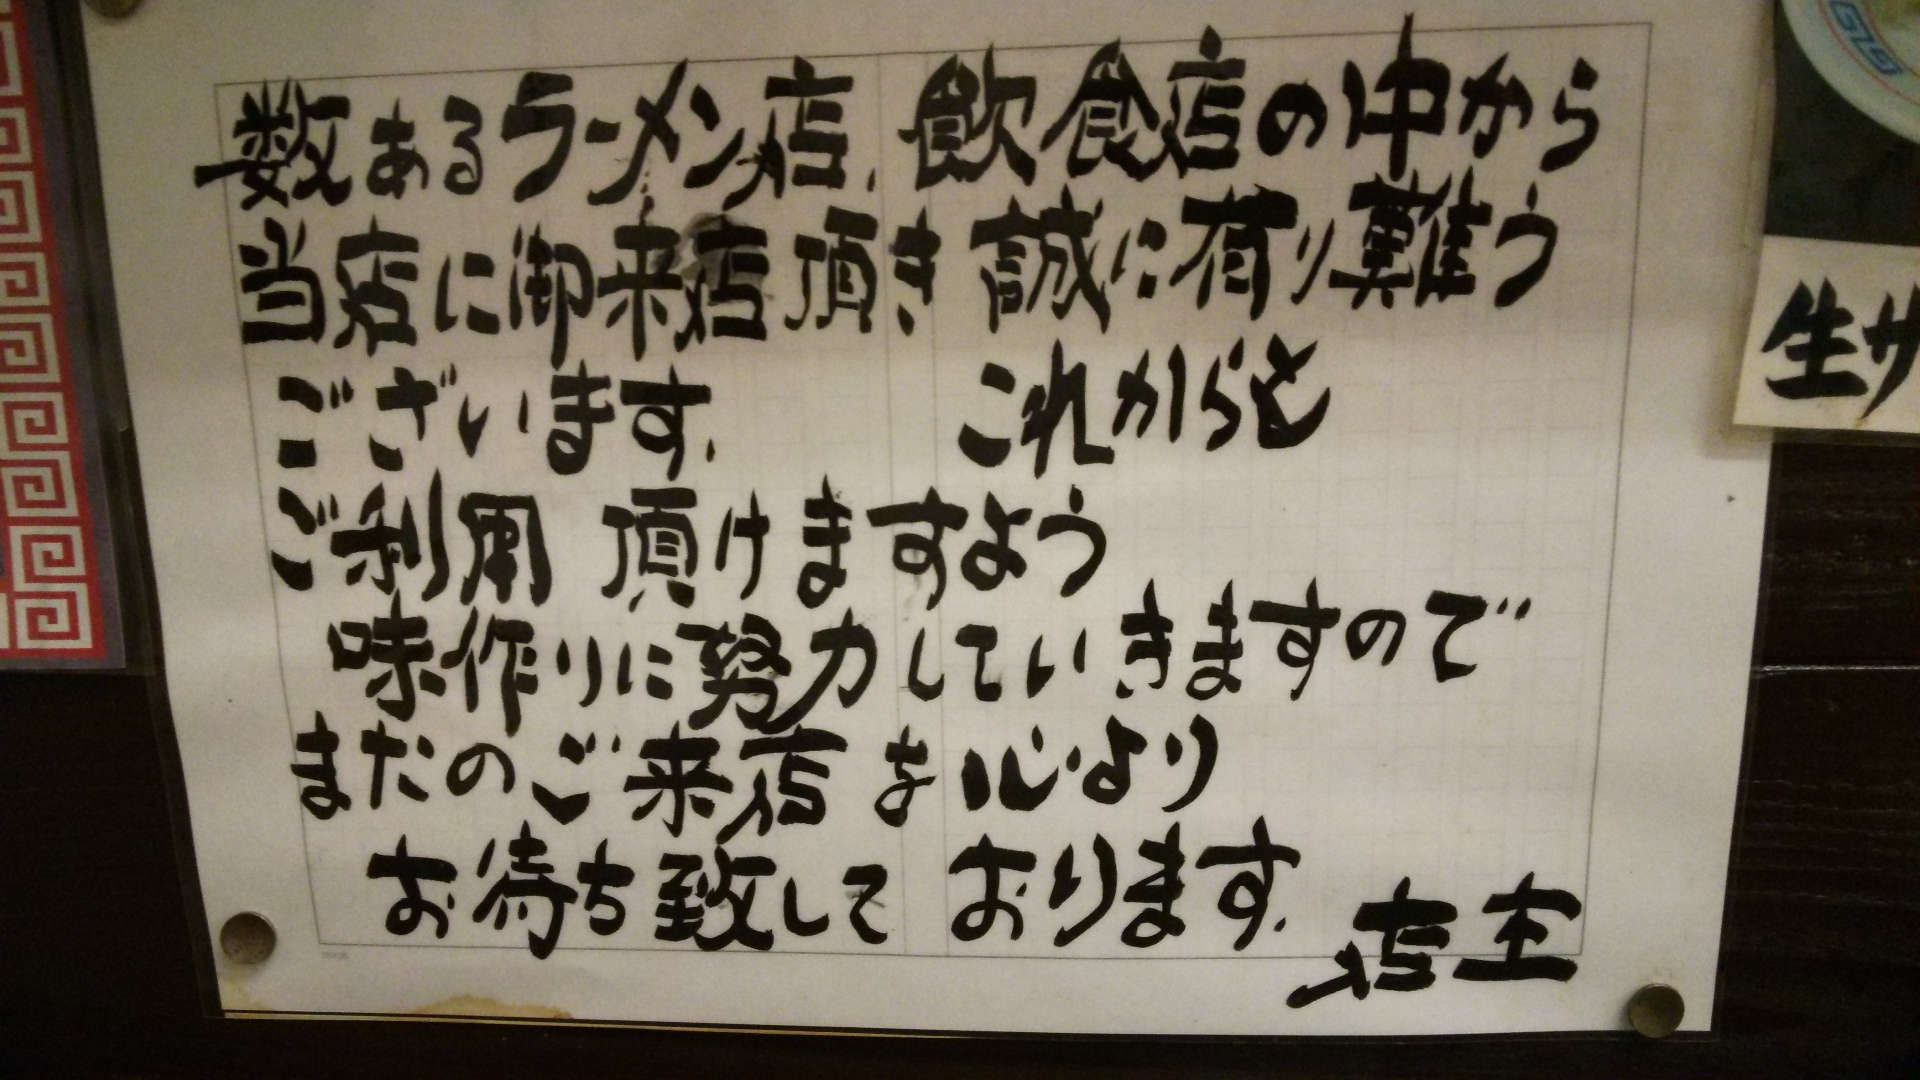 数あるラーメン店、飲食店の中から
当店に御来店頂き誠に有り難う
ございます。 これからも
ご利用 頂けますよう
味作りに努力していきますので
またのご来店を心より
お待ち致しております。
店主
生サ